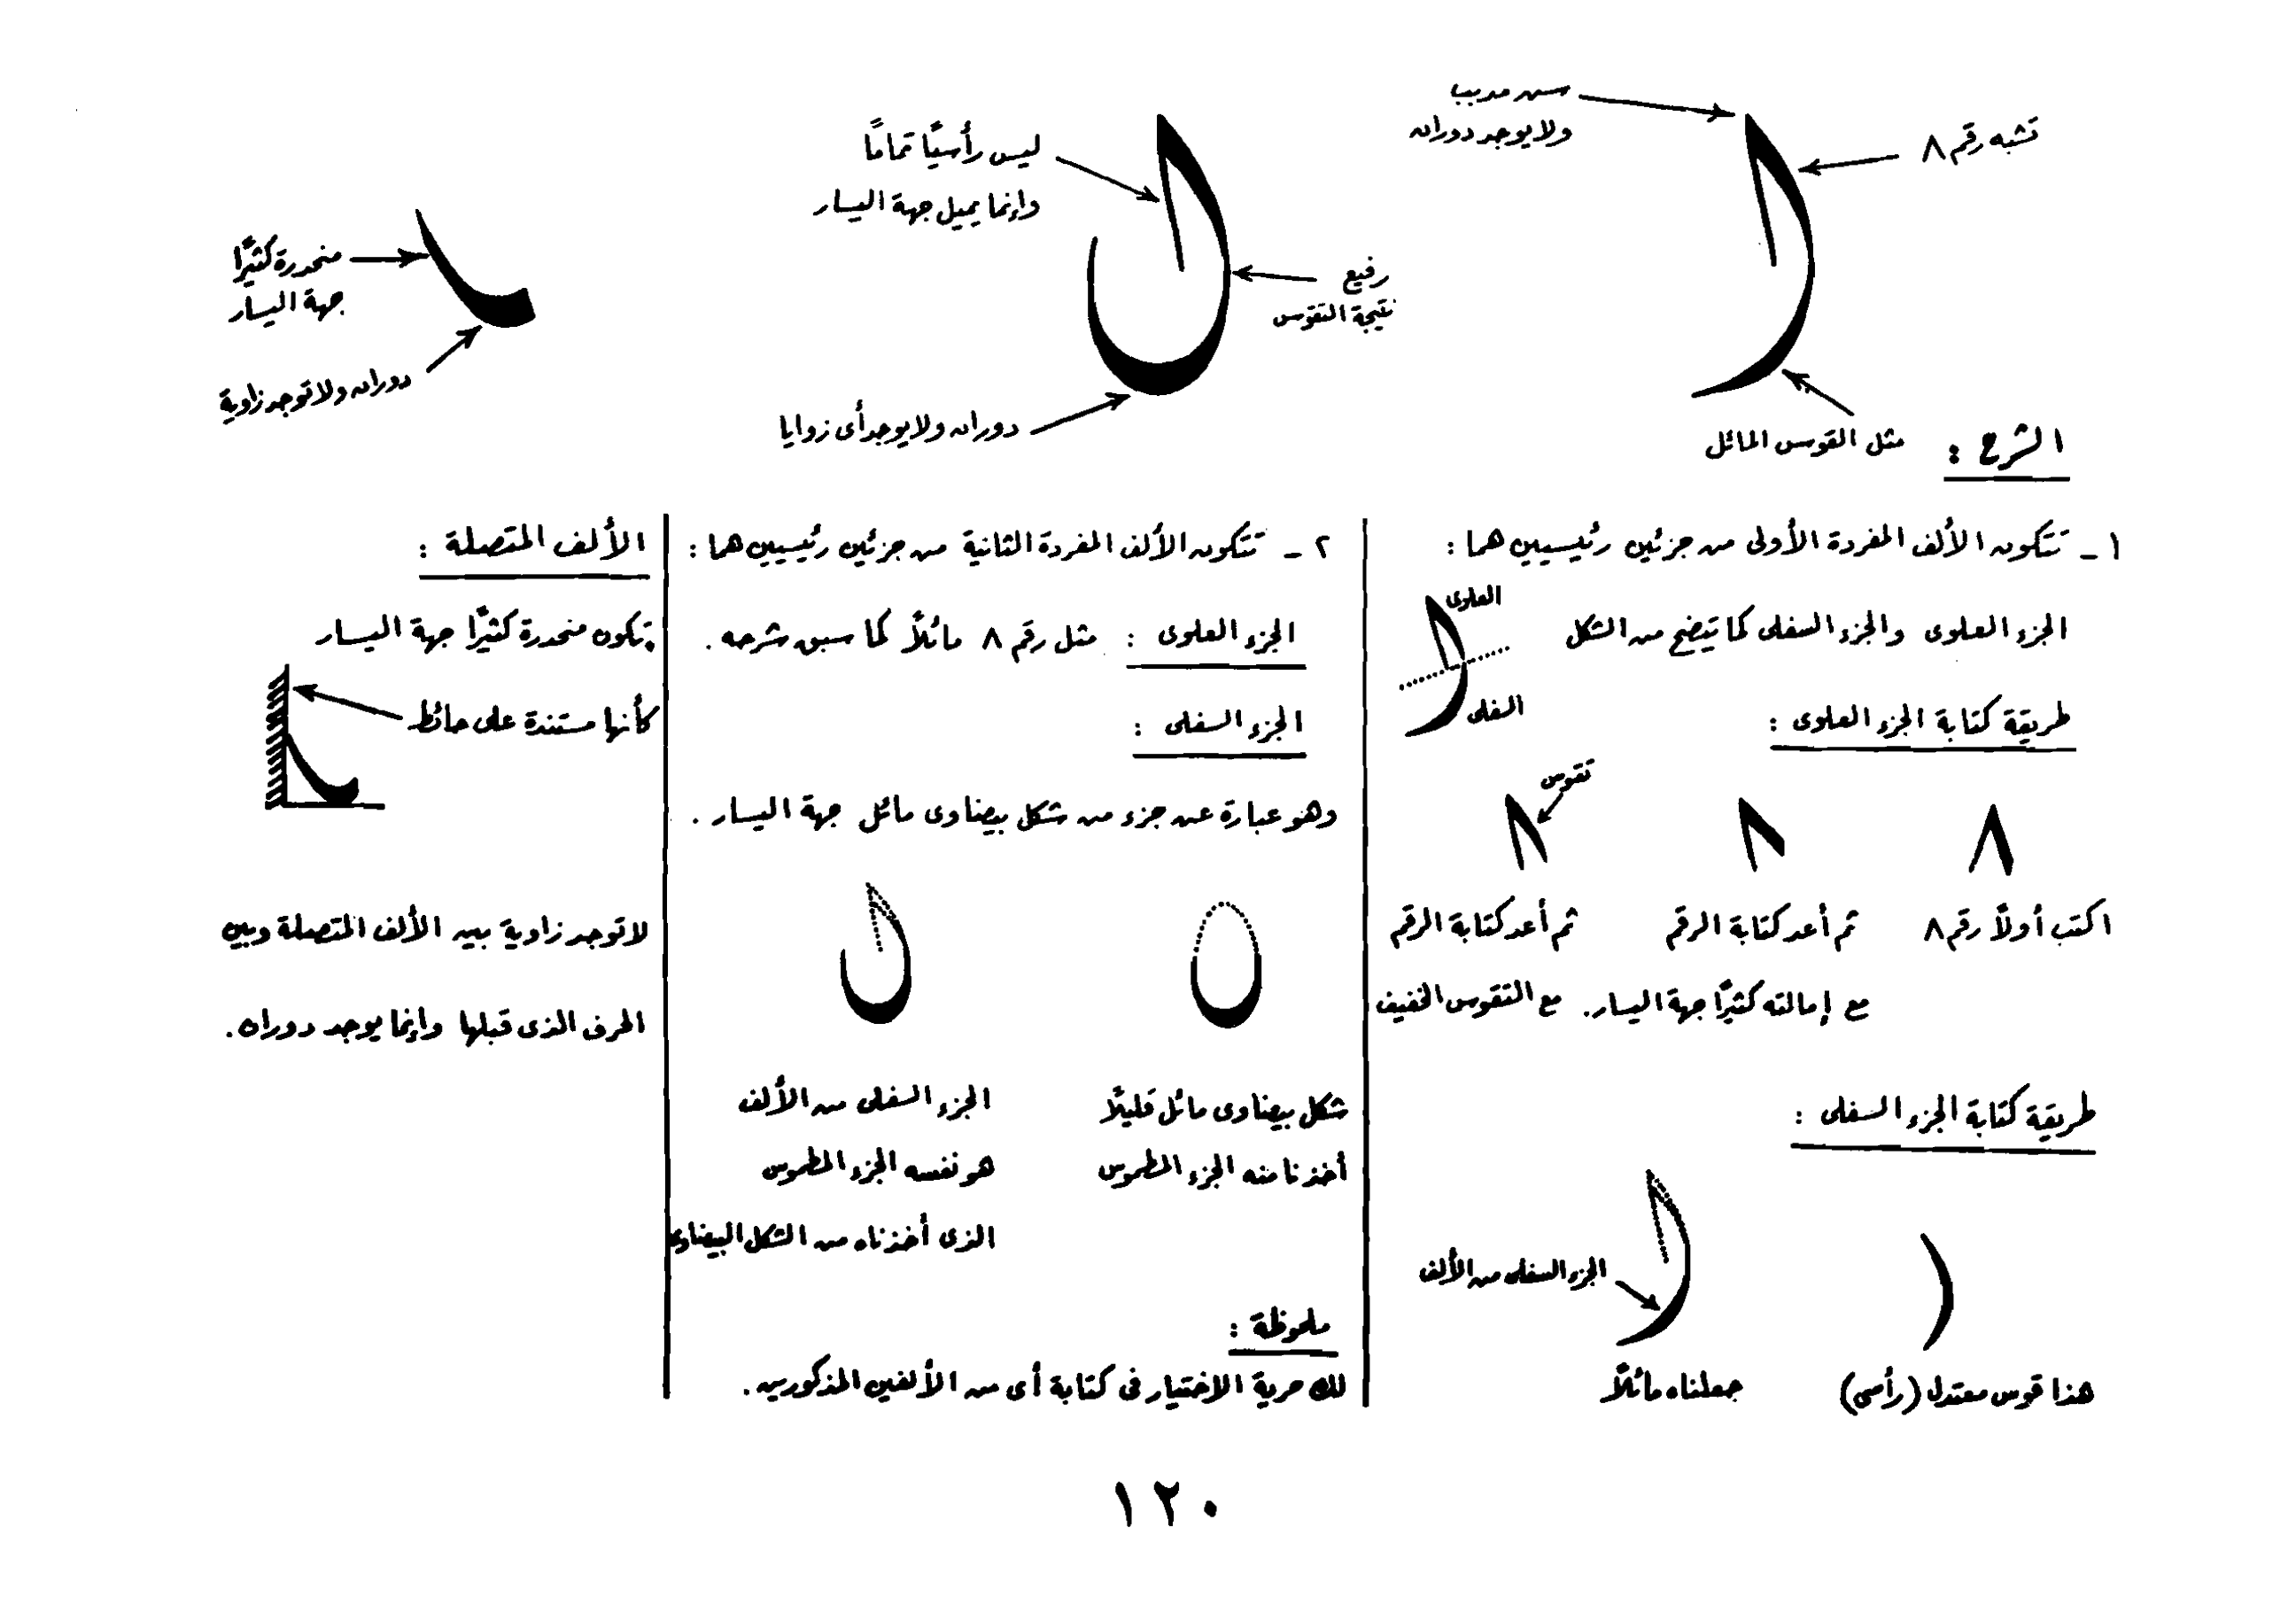 سن مدبب
ولا يوجد دوران
تشبه رقم ٨
مثل القوس المائل
ليس رأسيًا تمامًا
وإنما يميل جهة اليسار
رفيع
نتيجة التقوس
دوران ولا يوجد أى زوايا
منحدرة كثيرًا
جهة اليسار
دوران ولا توجد زاوية
الشرح :
١ - تتكون الألف المفردة الأولى من جزئين رئيسيين هما :
الجزء العلوى والجزء السفلى كما يتضح من الشكل
العلوى
السفلى
طريقة كتابة الجزء العلوى :
٨
٨
٨
تقوس
اكتب أولاً رقم ٨
ثم أعد كتابة الرقم
مع إمالته كثيرًا جهة اليسار.
ثم أعد كتابة الرقم
مع التقوس الخفيف
طريقة كتابة الجزء السفلى :
الجزء السفلى من الألف
هذا قوس معتدل (رأسى)
جعلناه مائلاً
٢ - تتكون الألف المفردة الثانية من جزئين رئيسيين هما :
الجزء العلوى : مثل رقم ٨ مائلاً كما سبق شرحه .
الجزء السفلى :
وهو عبارة عن جزء من شكل بيضاوى مائل جهة اليسار .
شكل بيضاوى مائل قليلاً
أخذنا منه الجزء المطموس
الجزء السفلى من الألف
هو نفسه الجزء المطموس
الذى أخذناه من الشكل البيضاوى
ملحوظة :
لك حرية الاختيار فى كتابة أى من الألفين المذكورين .
الألف المتصلة :
تكون منحدرة كثيرًا جهة اليسار
كأنها مستندة على حائط
لا توجد زاوية بين الألف المتصلة وبين
الحرف الذى قبلها وإنما يوجد دوران .
١٢٠